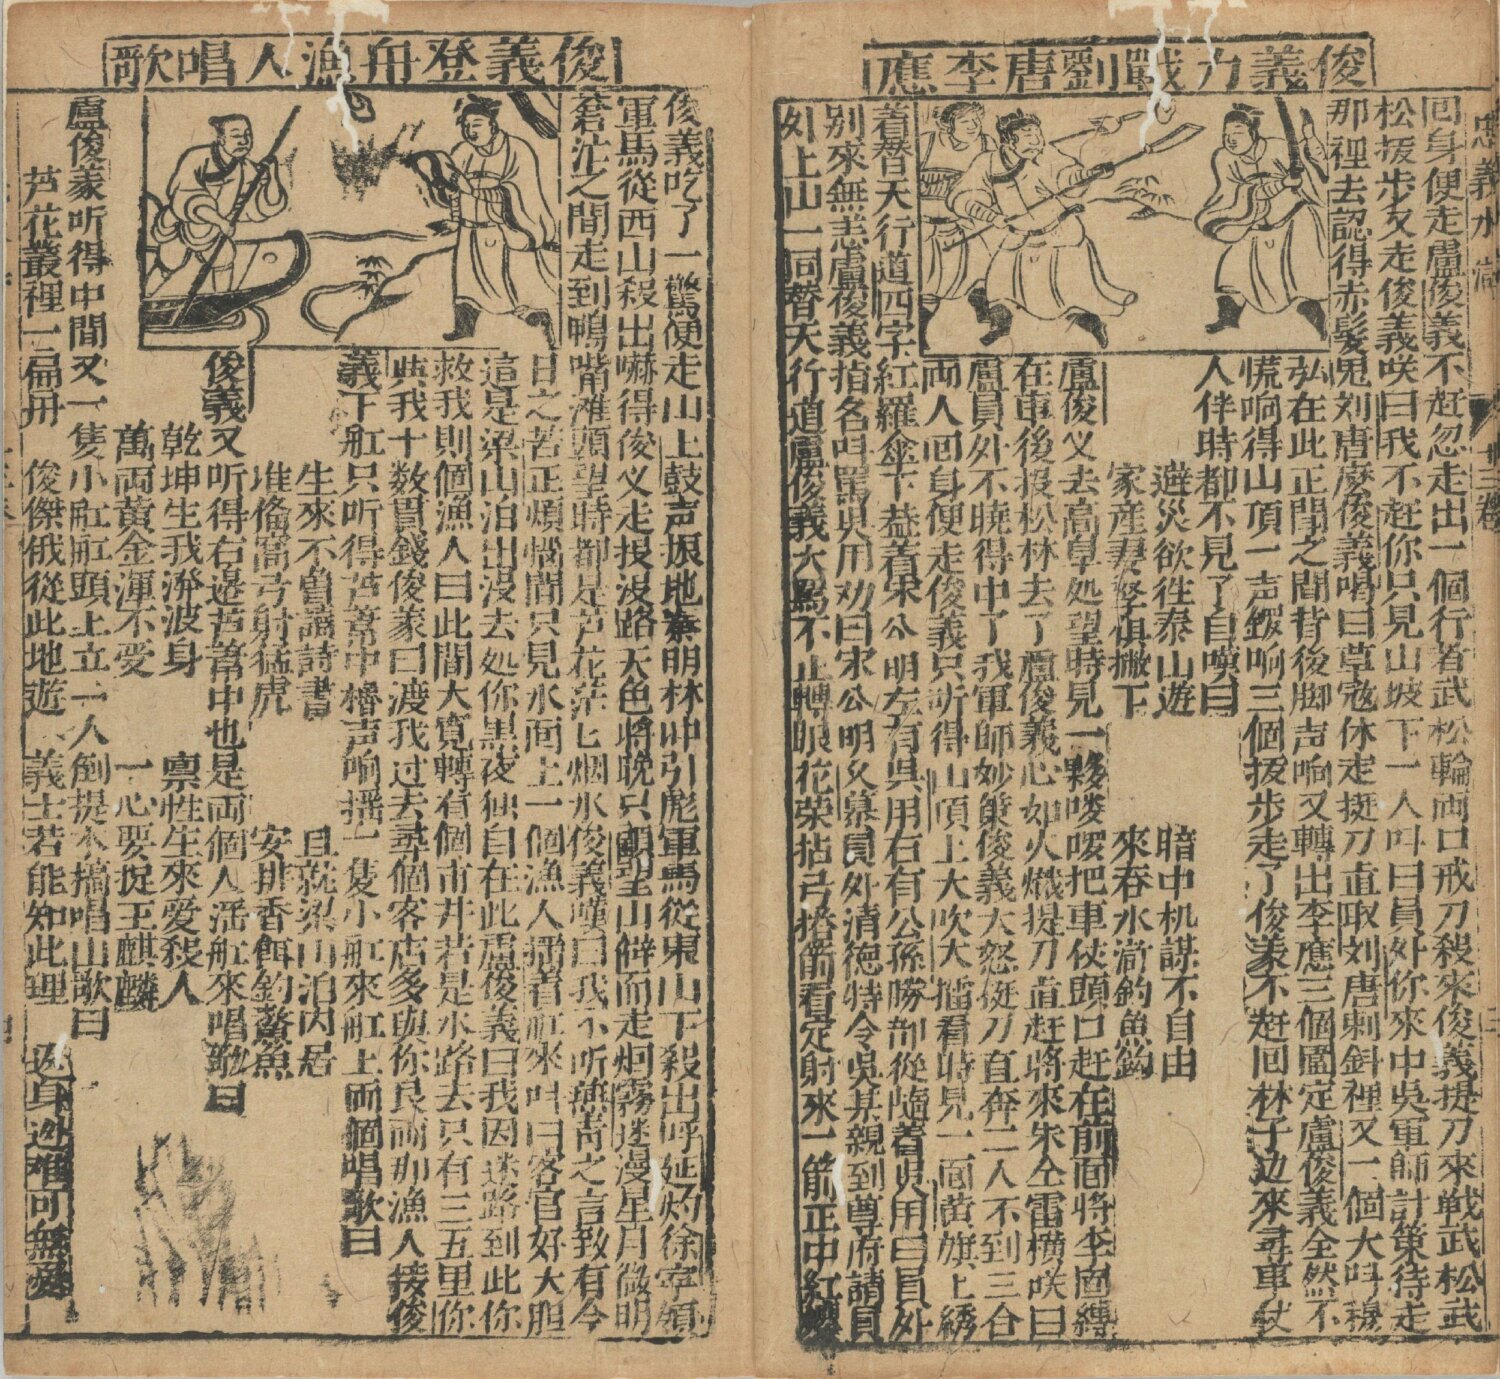 俊義力戰劉唐李應
忠義水滸
廿三卷
回身便走盧俊義不赶忽走出一個行者武松輪両口戒刀殺來俊義提刀來戦武松武
松拨步又走俊義咲曰我不赶你只見山坡下一人呌曰員外你來中吳軍師計策待走
那裡去認得赤髪鬼刘唐麽俊義喝曰草寇休走挺刀直取刘唐刺斜裡又一個大呌穆
弘在此正閗之間背後脚声响又轉出李應三個圍定盧俊義全然不
慌响得山頂一声鑼响三個拨步走了俊義不赶回林子边來尋車仗
人伴時都不見了自嘆曰
避災欲徃泰山遊
暗中机謀不自由
家産妻孥俱撇下
來吞水滸釣魚鈎
盧俊义去高阜処望時見一夥喽啰把車仗頭口赶在前面將李固縛
在車後投松林去了盧俊義心如火熾提刀直赶將來朱仝雷横咲曰
盧員外不曉得中了我軍師妙策俊義大怒挺刀直奔二人不到三合
両人回身便走俊義只听得山頂上大吹大擂看時見一面黄旗上綉
着替天行道四字紅羅傘下葢着宋公明左有吳用右有公孫勝部從隨着吳用曰員外
別來無恙盧俊義指名呌罵吳用劝曰宋公明久慕員外清德特令吳某親到尊府請員
外上山一同替天行道盧俊義大罵不止轉眼花荣拈弓搭箭看定射來一箭正中紅纓
俊義登舟漁人唱歌
俊義吃了一驚便走山上鼓声振地秦明林冲引彪軍馬從東山下殺出呼延灼徐寧領
軍馬從西山殺出嚇得俊义走投没路天色將晚只顧望山僻而走烟霧迷漫星月微明
蒼茫之間走到鴨嘴滩頭望時都是芦花茫匕烟水俊義嘆曰我不听燕青之言致有今
日之苦正煩惱間只見水面上一個漁人揺着舡來呌曰客官好大胆
這是梁山泊出没去処你黒夜独自在此盧俊義曰我因迷路到此你
救我則個漁人曰此間大寛轉有個市井若是水路去只有三五里你
與我十数貫錢俊義曰渡我过去尋個客店多與你艮両那漁人接俊
義下舡只听得芦葦中櫓声响揺一隻小舡來舡上両個唱歌曰
生來不曽讀詩書
且就梁山泊内居
准俻窩弓射猛虎
安排香餌釣鰲魚
俊義又听得右邉芦葦中也是両個人揺舡來唱歌曰
乾坤生我泼波身
禀性生來爱殺人
萬両黄金渾不爱
一心要捉玉麒麟
盧俊義听得中間又一隻小舡舡頭上立一人倒提木搞唱山歌曰
芦花叢裡一扁舟
俊傑俄從此地遊
義士若能知此理
返身迯难可無憂